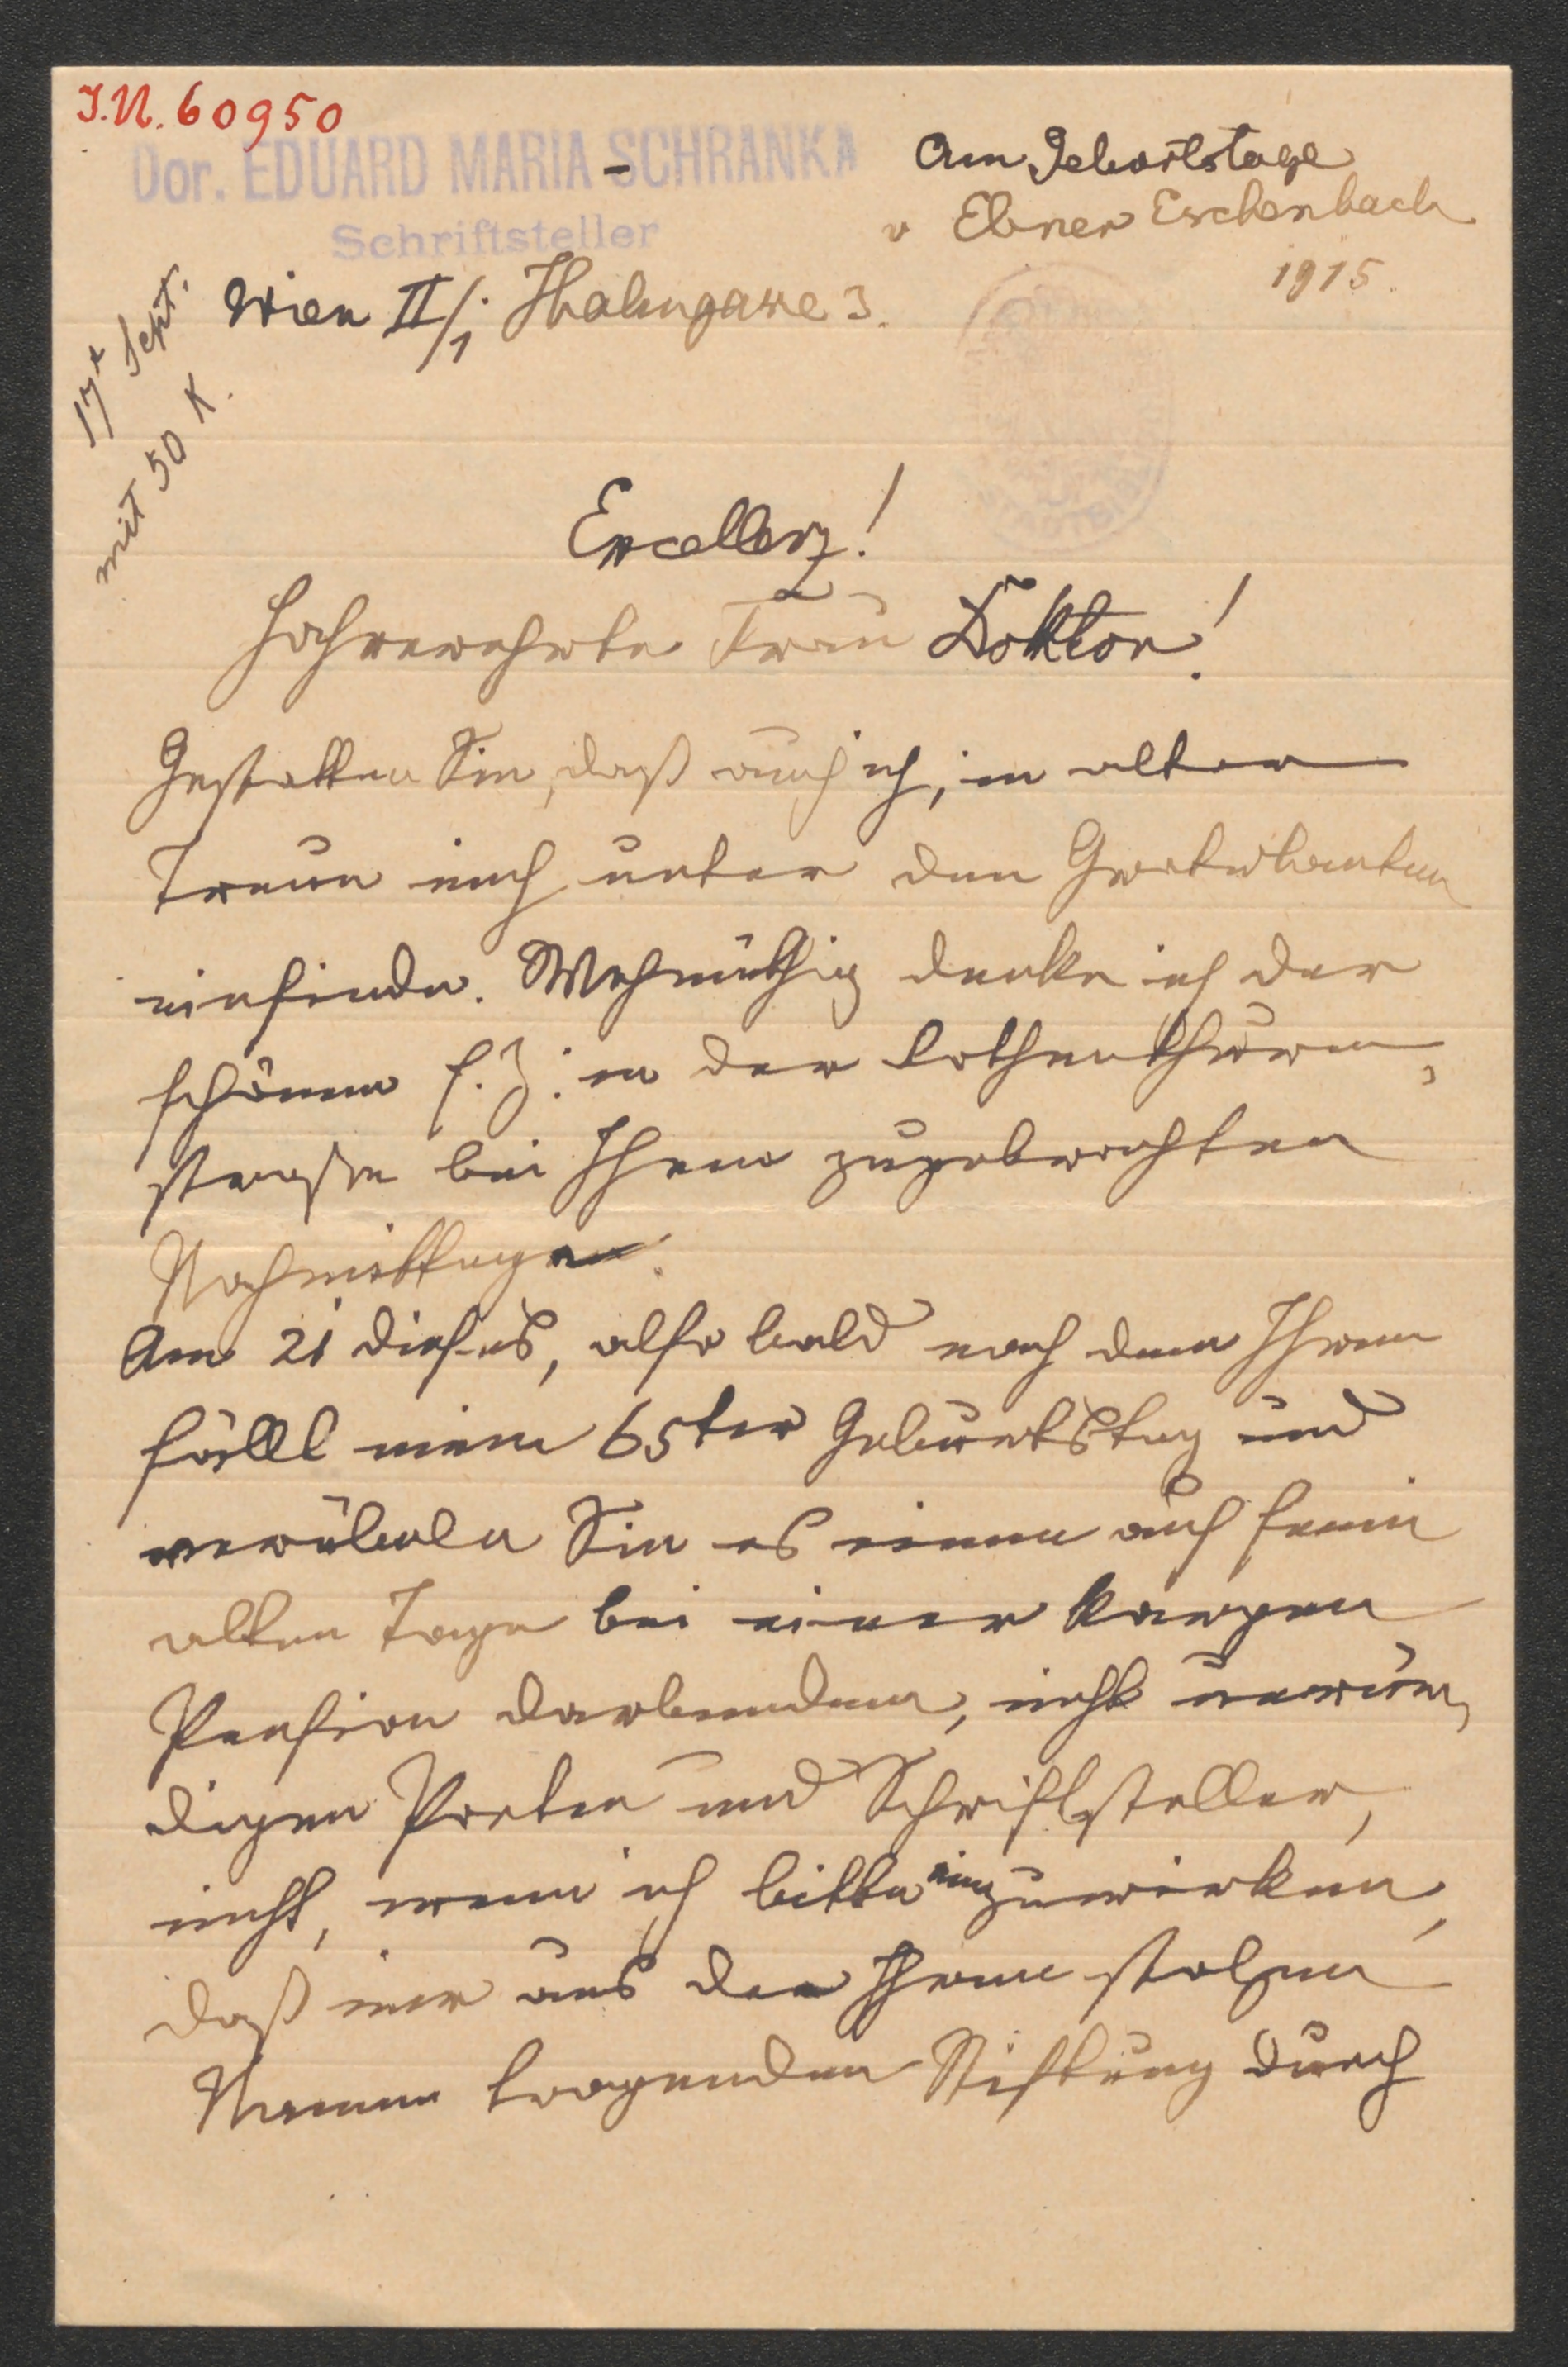 J.N. 60950
Dor. EDUARD MARIA SCHRANKA
Schriftsteller
Am Geburtstage
v Ebner Eschenbach
1915.
Wien II/1
17t Sept.
mit 50 K.
Excellenz!
Hochverehrte Frau Doktor!
Gestatten Sie, daß auch ich, in alter
Treue mich unter den Gratulanten
einfinde. Wehmüthig denke ich der
schönen s. Z. in der Rothenthurm-
straße bei Ihnen zugebrachten
Nachmittage.
Am 21 dieses, also bald nach dem Ihren
fällt mein 65ter Geburtstag und
verübeln Sie es einem auf seine
alten Tage bei einer kargen
Pension darbenden, nicht unwür-
digen Poeten und Schriftsteller,
nicht, wenn ich bitte einzuwirken,
daß mir aus der Ihren stolzen
Namen tragenden Stiftung durch